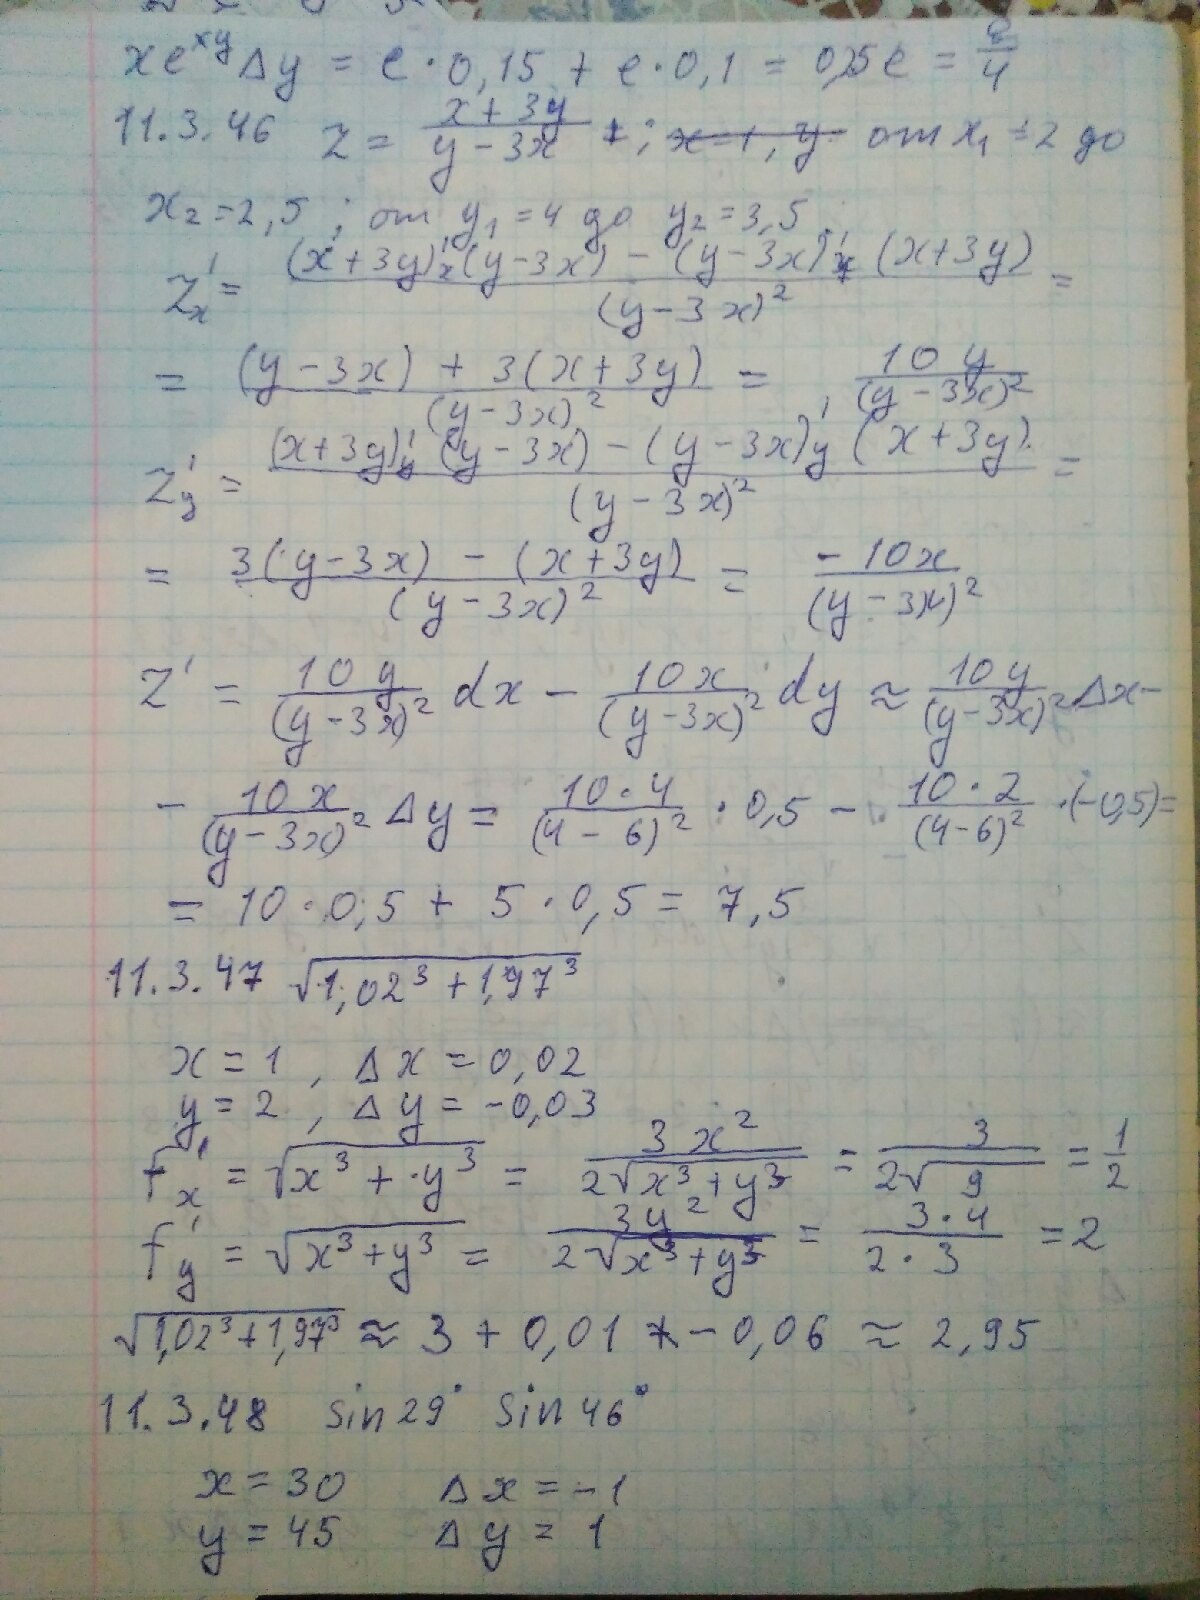 xe^{xy}Δy = e·0,15 + e·0,1 = 0,25e = e/4
11.3.46 z = (x + 3y)/(y − 3x) ; x = 1, y от x₁ = 2 до
x₂ = 2,5 ; от y₁ = 4 до y₂ = 3,5
z'ₓ = ((x + 3y)'ₓ (y − 3x) − (y − 3x)'ₓ (x + 3y))/(y − 3x)² =
= ((y − 3x) + 3(x + 3y))/(y − 3x)² = 10y/(y − 3x)²
z'_y = ((x + 3y)'_y (y − 3x) − (y − 3x)'_y (x + 3y))/(y − 3x)² =
= (3(y − 3x) − (x + 3y))/(y − 3x)² = −10x/(y − 3x)²
z' = 10y/(y − 3x)² dx − 10x/(y − 3x)² dy ≈ 10y/(y − 3x)² Δx −
− 10x/(y − 3x)² Δy = 10·4/(4 − 6)² · 0,5 − 10·2/(4 − 6)² · (−0,5) =
= 10·0,5 + 5·0,5 = 7,5
11.3.47 √(1,02³ + 1,97³)
x = 1 , Δx = 0,02
y = 2 , Δy = −0,03
f'ₓ = √(x³ + y³) = 3x²/(2√(x³ + y³)) = 3/(2√9) = 1/2
f'_y = √(x³ + y³) = 3y²/(2√(x³ + y³)) = 3·4/(2·3) = 2
√(1,02³ + 1,97³) ≈ 3 + 0,01 − 0,06 ≈ 2,95
11.3.48 sin 29° sin 46°
x = 30 Δx = −1
y = 45 Δy = 1